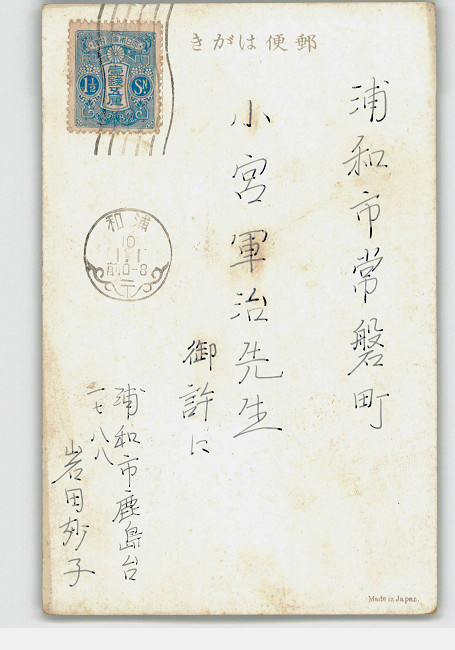 郵便はがき
浦和市常磐町
小宮軍治先生
御許に
浦和市鹿島台
一七八八
岩田妙子
壹錢五厘
1½ Sn
浦和
10
11.1
前0-8
Made in Japan.